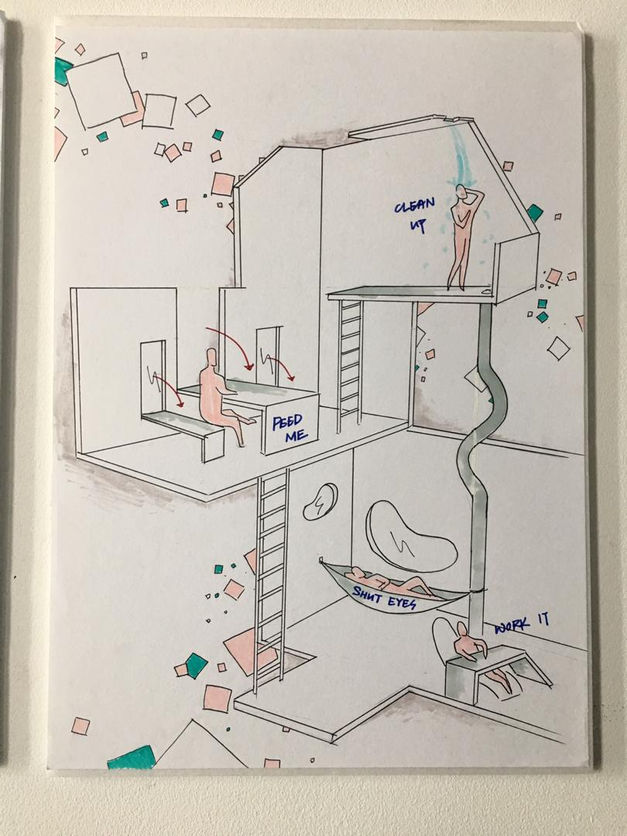 CLEAN
UP
FEED
ME
SHUT EYES
WORK IT